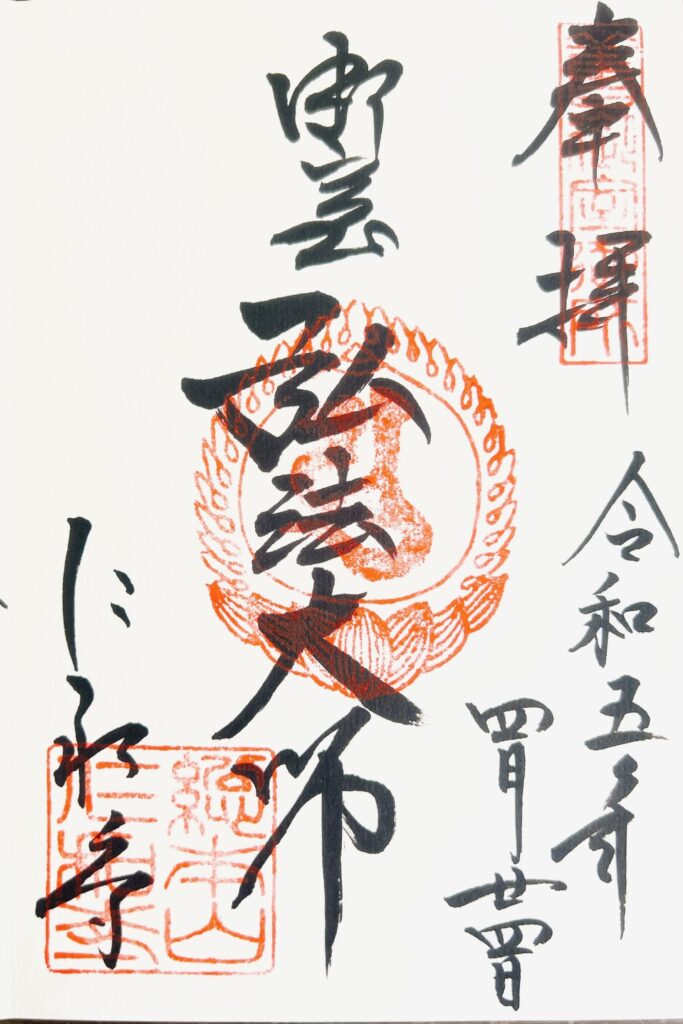 奉拝
令和五年
四月廿四日
御室
弘法大師
仁和寺
總本山
仁和寺